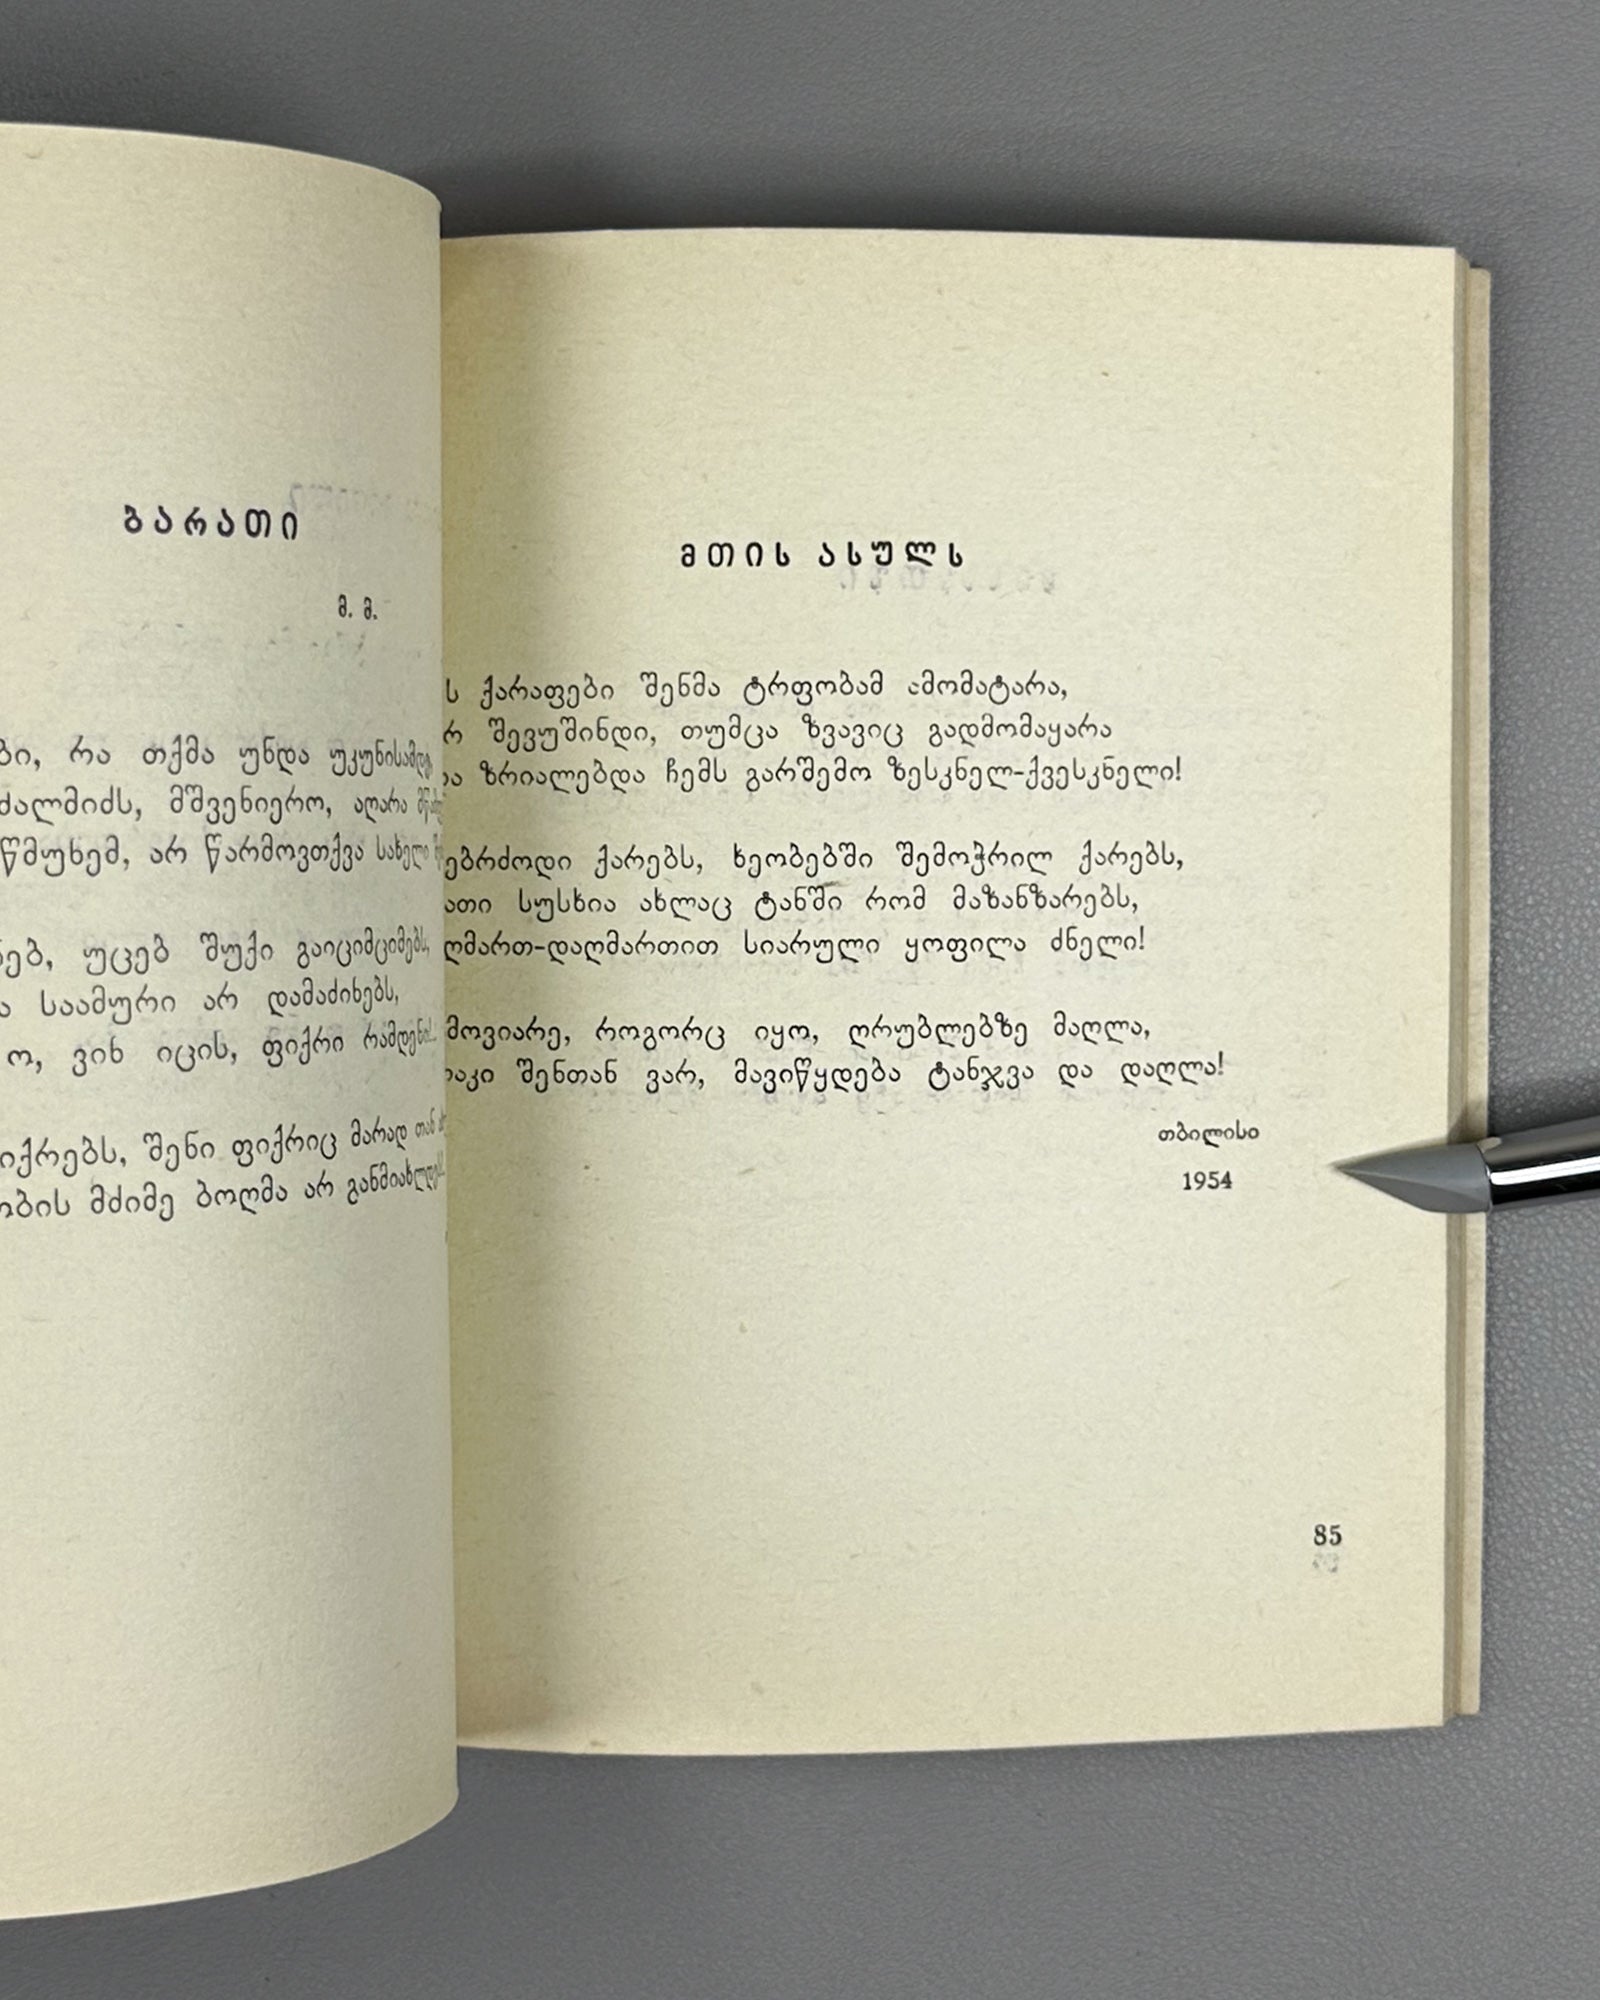 ბარათი
მ. მ.
რა თქმა უნდა უკუნისამდე
მშვენიერო, აღარა
არ წარმოვთქვა სახელი
უცებ შუქი გაიციმციმებს,
საამური არ დამაძიხებს,
ო, ვინ იცის, ფიქრი რამდენის
შენი ფიქრიც მარად თან
მძიმე ბოღმა არ
მთის ასულს
ქარაფები შენმა ტრფობამ ამომატარა,
შევუშინდი, თუმცა ზვავიც გადმომაყარა
ზრიალებდა ჩემს გარშემო ზესკნელ-ქვესკნელი!
ებრძოდი ქარებს, ხეობებში შემოჭრილ ქარებს,
სუსხია ახლაც ტანში რომ მაზანზარებს,
ღმართ-დაღმართით სიარული ყოფილა ძნელი!
მოვიარე, როგორც იყო, ღრუბლებზე მაღლა,
შენთან ვარ, მავიწყდება ტანჯვა და დაღლა!
თბილისი
1954
85